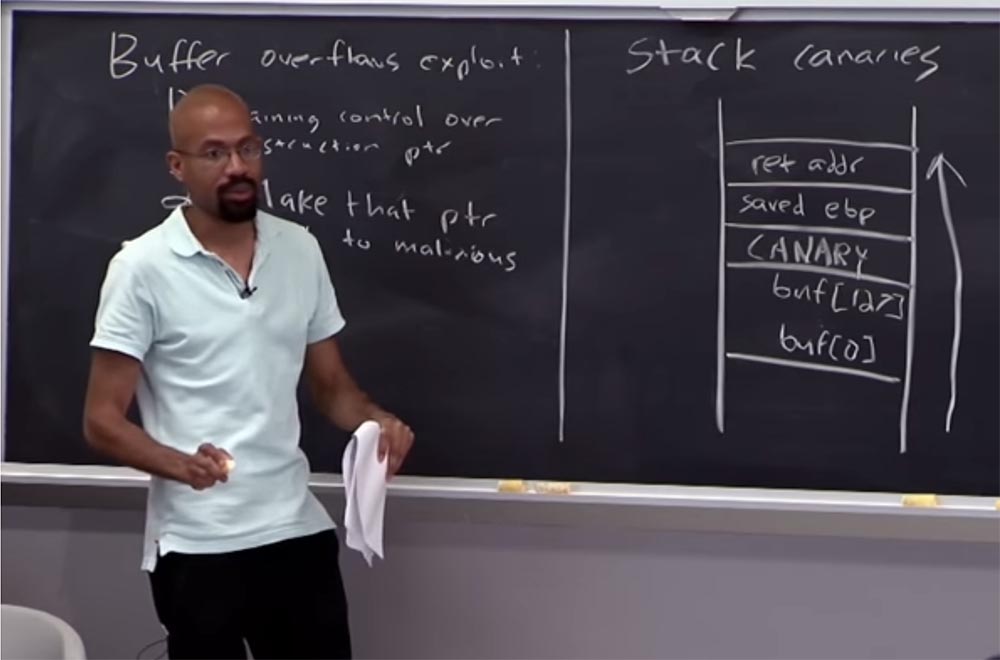 Buffer overflows exploit:
aining control over
struction ptr
ake that ptr
to malicious
Stack canaries
ret addr
saved ebp
CANARY
buf[127]
buf[0]